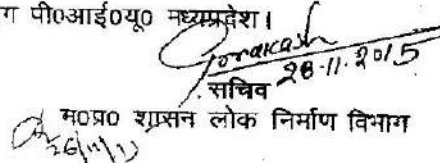 ग पी०आई०यू० मध्यप्रदेश।
28-11-2015
सचिव
म०प्र० शासन लोक निर्माण विभाग